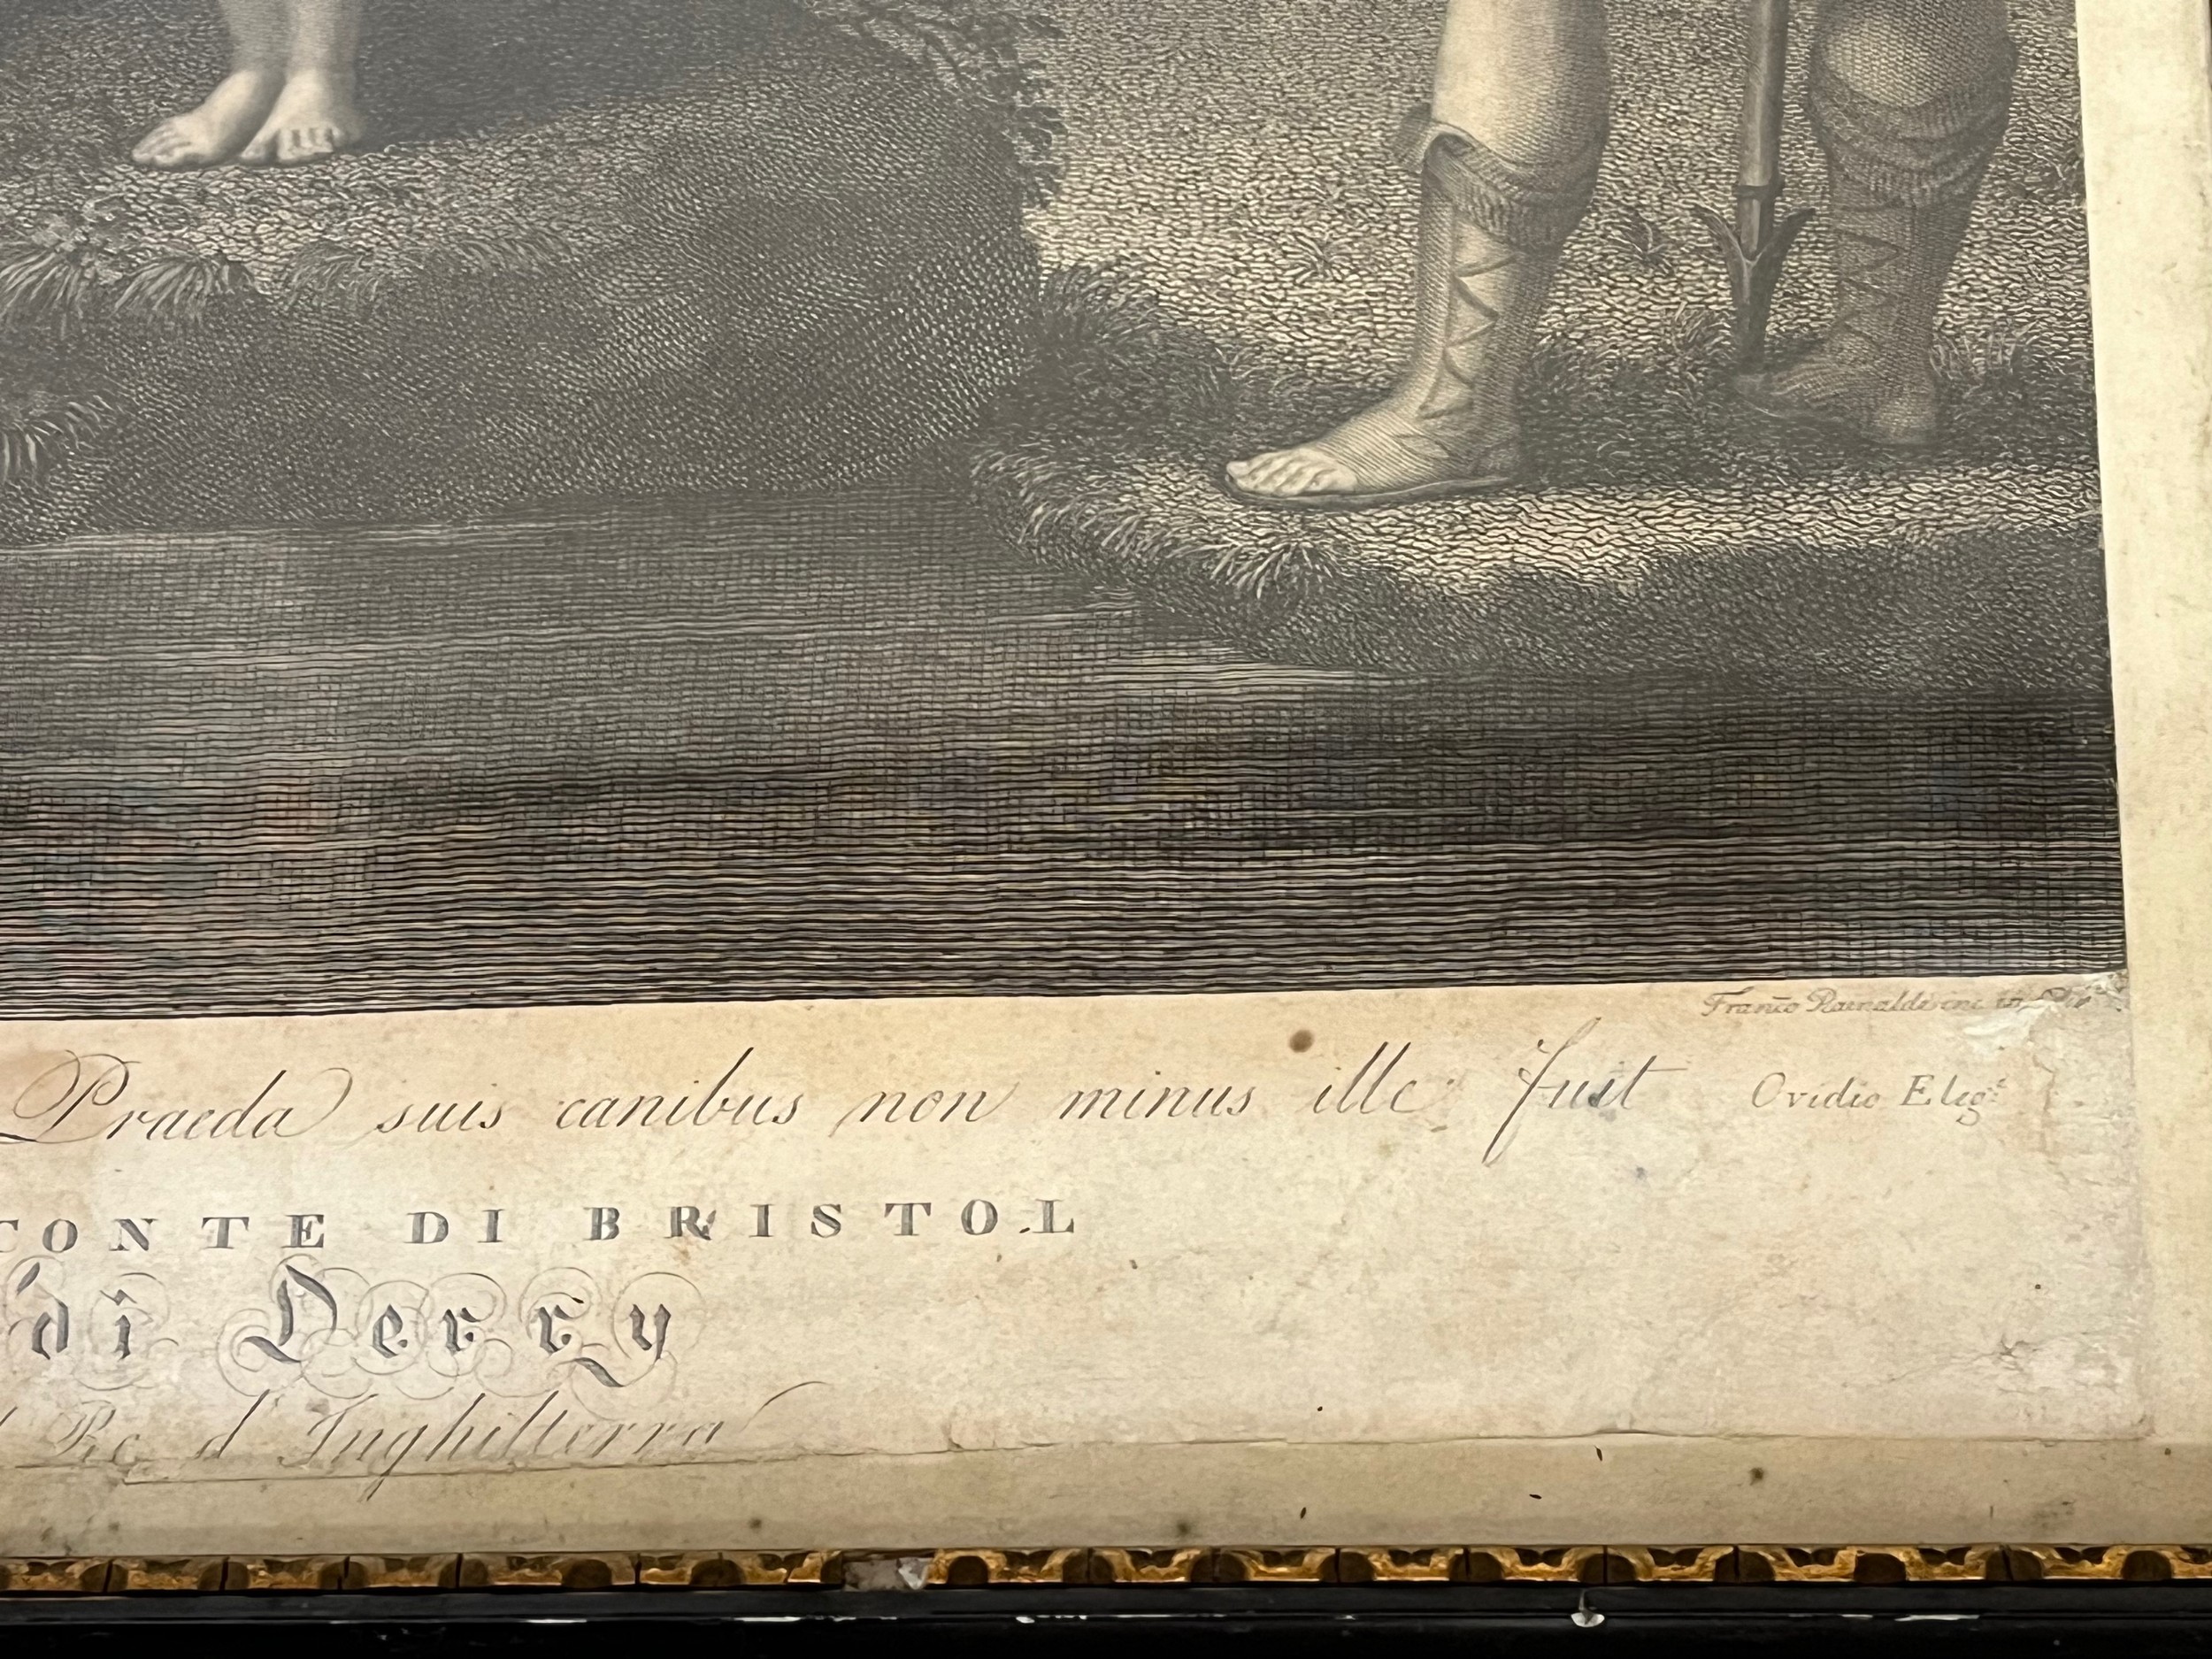 Franco Rainaldi inc in
Praeda suis canibus non minus ille fuit Ovidio Eleg.
CONTE DI BRISTOL
di Derry
Re d'Inghilterra